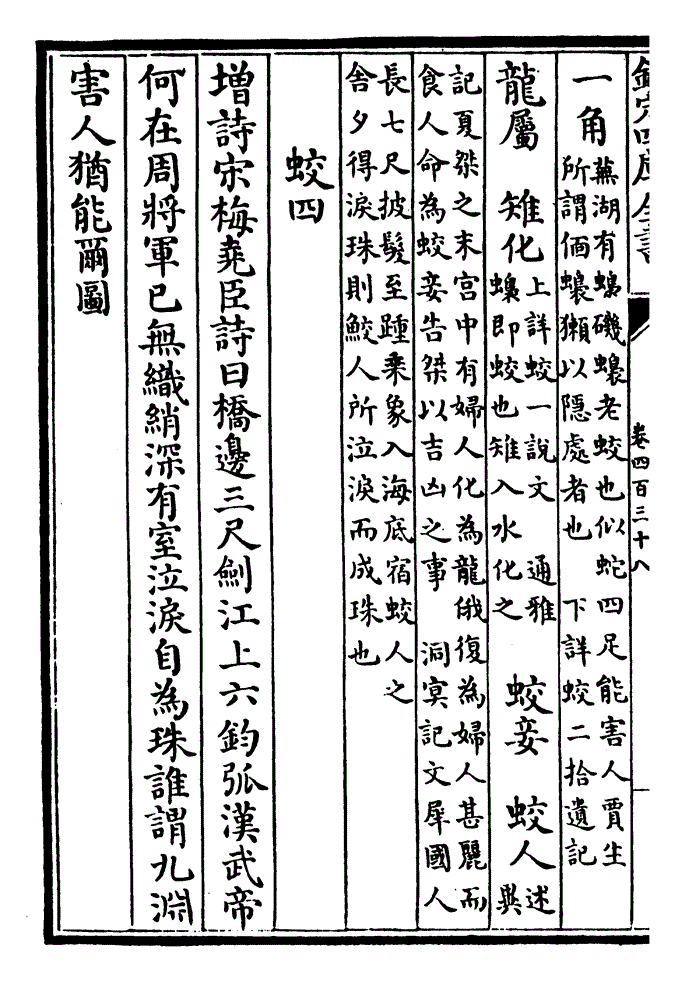 欽定四庫全書
卷四百三十八
一角
蕪湖有蟂磯蟂老蛟也似蛇四足能害人賈生
所謂偭蟂獺以隱處者也 下詳蛟二拾遺記
龍屬 雉化
上詳蛟一說文 通雅
蟂即蛟也雉入水化之
蛟妾 蛟人
述
異
記夏桀之末宮中有婦人化為龍俄復為婦人甚麗而
食人命為蛟妾告桀以吉凶之事 洞冥記文犀國人
長七尺披髮至踵乘象入海底宿蛟人之
舍夕得淚珠則鮫人所泣淚而成珠也
蛟四
增詩宋梅堯臣詩曰橋邊三尺劍江上六鈞弧漢武帝
何在周將軍已無織綃深有室泣淚自為珠誰謂九淵
害人猶能爾圖